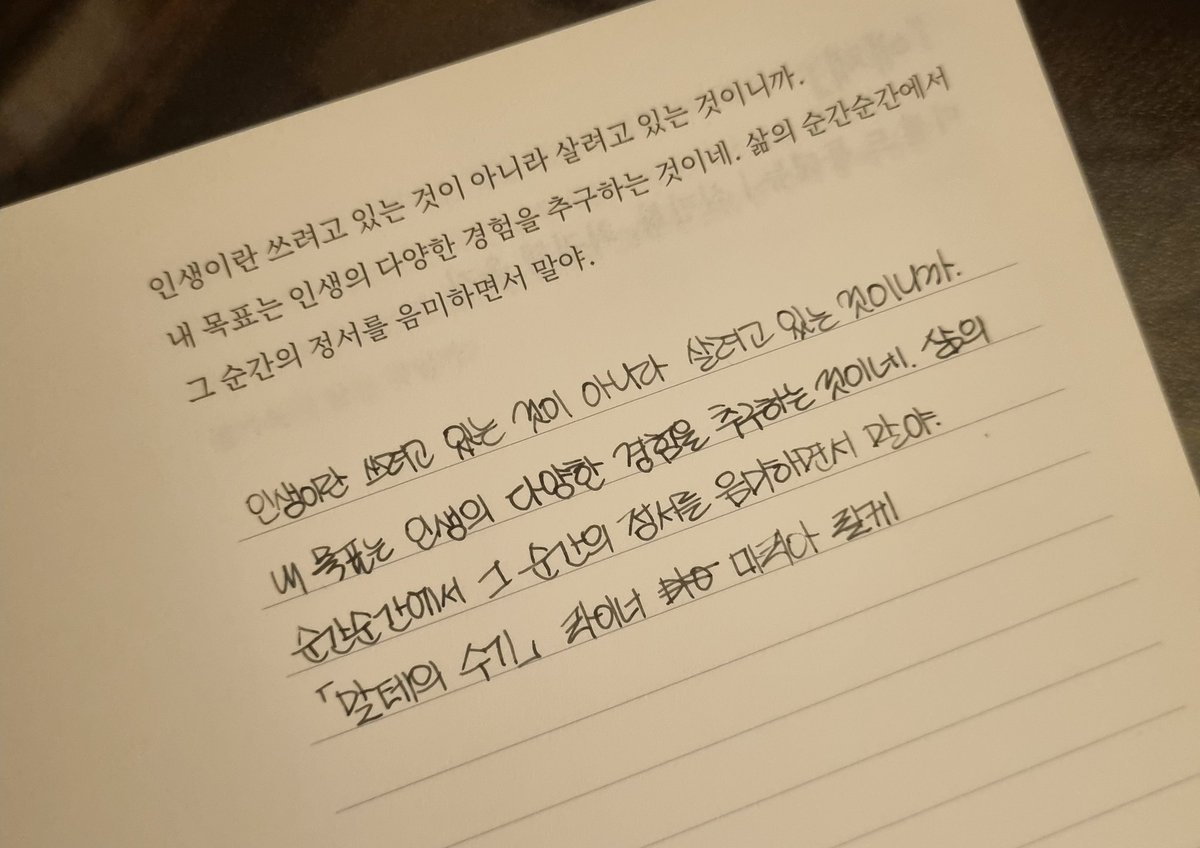 인생이란 쓰려고 있는 것이 아니라 살려고 있는 것이니까.
내 목표는 인생의 다양한 경험을 추구하는 것이네. 삶의 순간순간에서
그 순간의 정서를 음미하면서 말야.
인생이란 쓰려고 있는 것이 아니라 살려고 있는 것이니까.
내 목표는 인생의 다양한 경험을 추구하는 것이네. 삶의
순간순간에서 그 순간의 정서를 음미하면서 말야.
「말테의 수기」 라이너 마리아 릴케